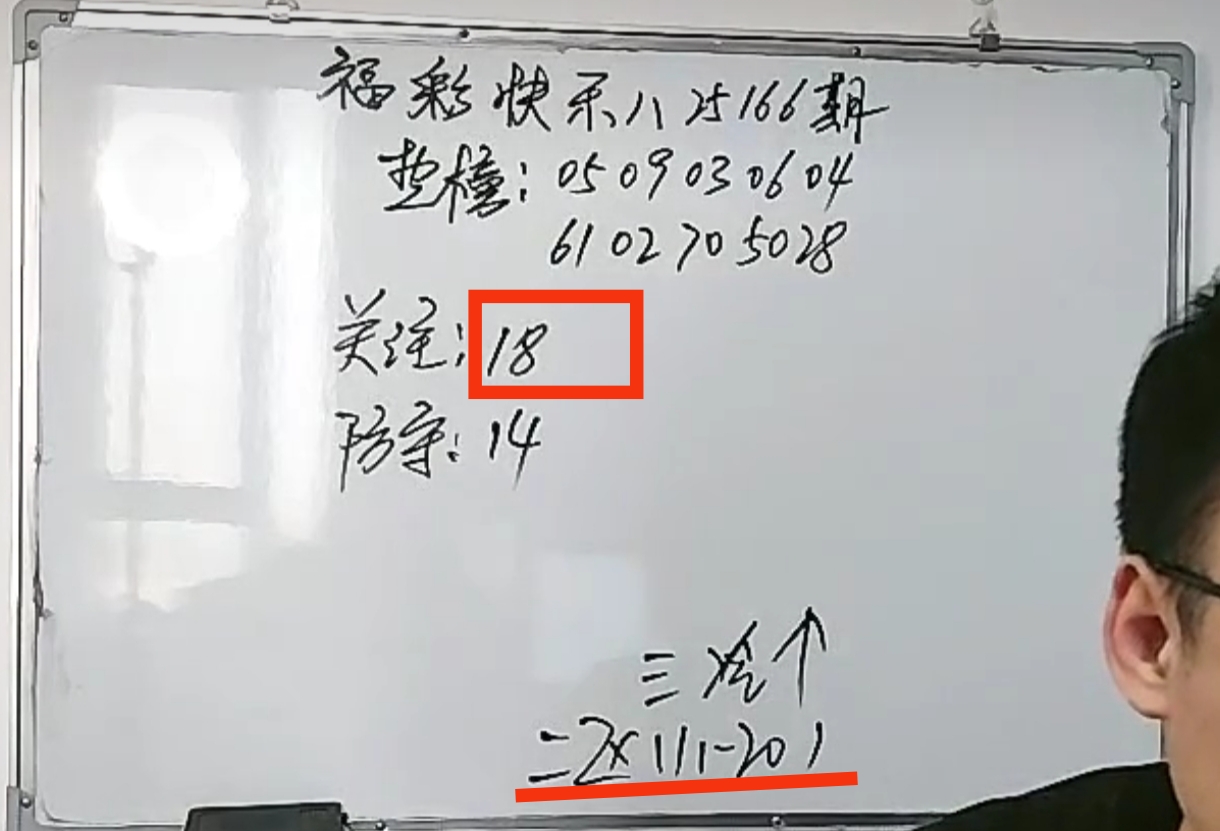 福彩快乐八25166期
垫檯：05 09 03 06 04
61 02 70 50 28
关注：18
防守：14
三冷↑
二2X111-201